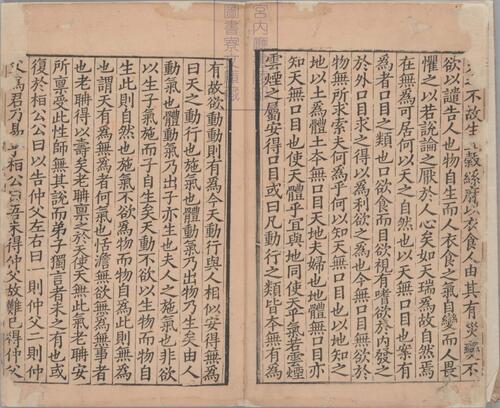 不故生穀絲麻以衣食人由其有災變不
欲以譴告人也物自生而人衣食之氣自變而人畏
懼之以若說論之厭於人心矣如天瑞為故自然焉
在無為何居何以天之自然也以天無口目也案有
為者口目之類也口欲食而目欲視有嗜欲於內發之
於外口目求之得以為利欲之為也今無口目之欲於
物無所求索夫何為乎何以知天無口目也以地知之
地以土為體土本無口目天地夫婦也地體無口目亦
知天無口目也使天體乎宜與地同使天乎氣若雲煙
雲煙之屬安得口目或曰凡動行之類皆本無有為
有欲故動動則有為今天動行與人相似安得無為
曰天之動行也施氣也體動氣乃出物乃生矣由人
動氣也體動氣乃出子亦生也夫人之施氣也非欲
以生子氣施而子自生矣天動不欲以生物而物自
生此則自然也施氣不欲為物而物自為此則無為
也謂天有為無為者何氣也恬澹無欲無為無事者
也老聃得以壽矣老聃稟之於天使天無此氣老聃安
所稟受此性師無其說而弟子獨言者未之有也或
復於桓公公曰以告仲父左右曰一則仲父二則仲
父為君乃易乎桓公曰吾未得仲父故難已得仲父
宮内廳
圖書寮文庫藏